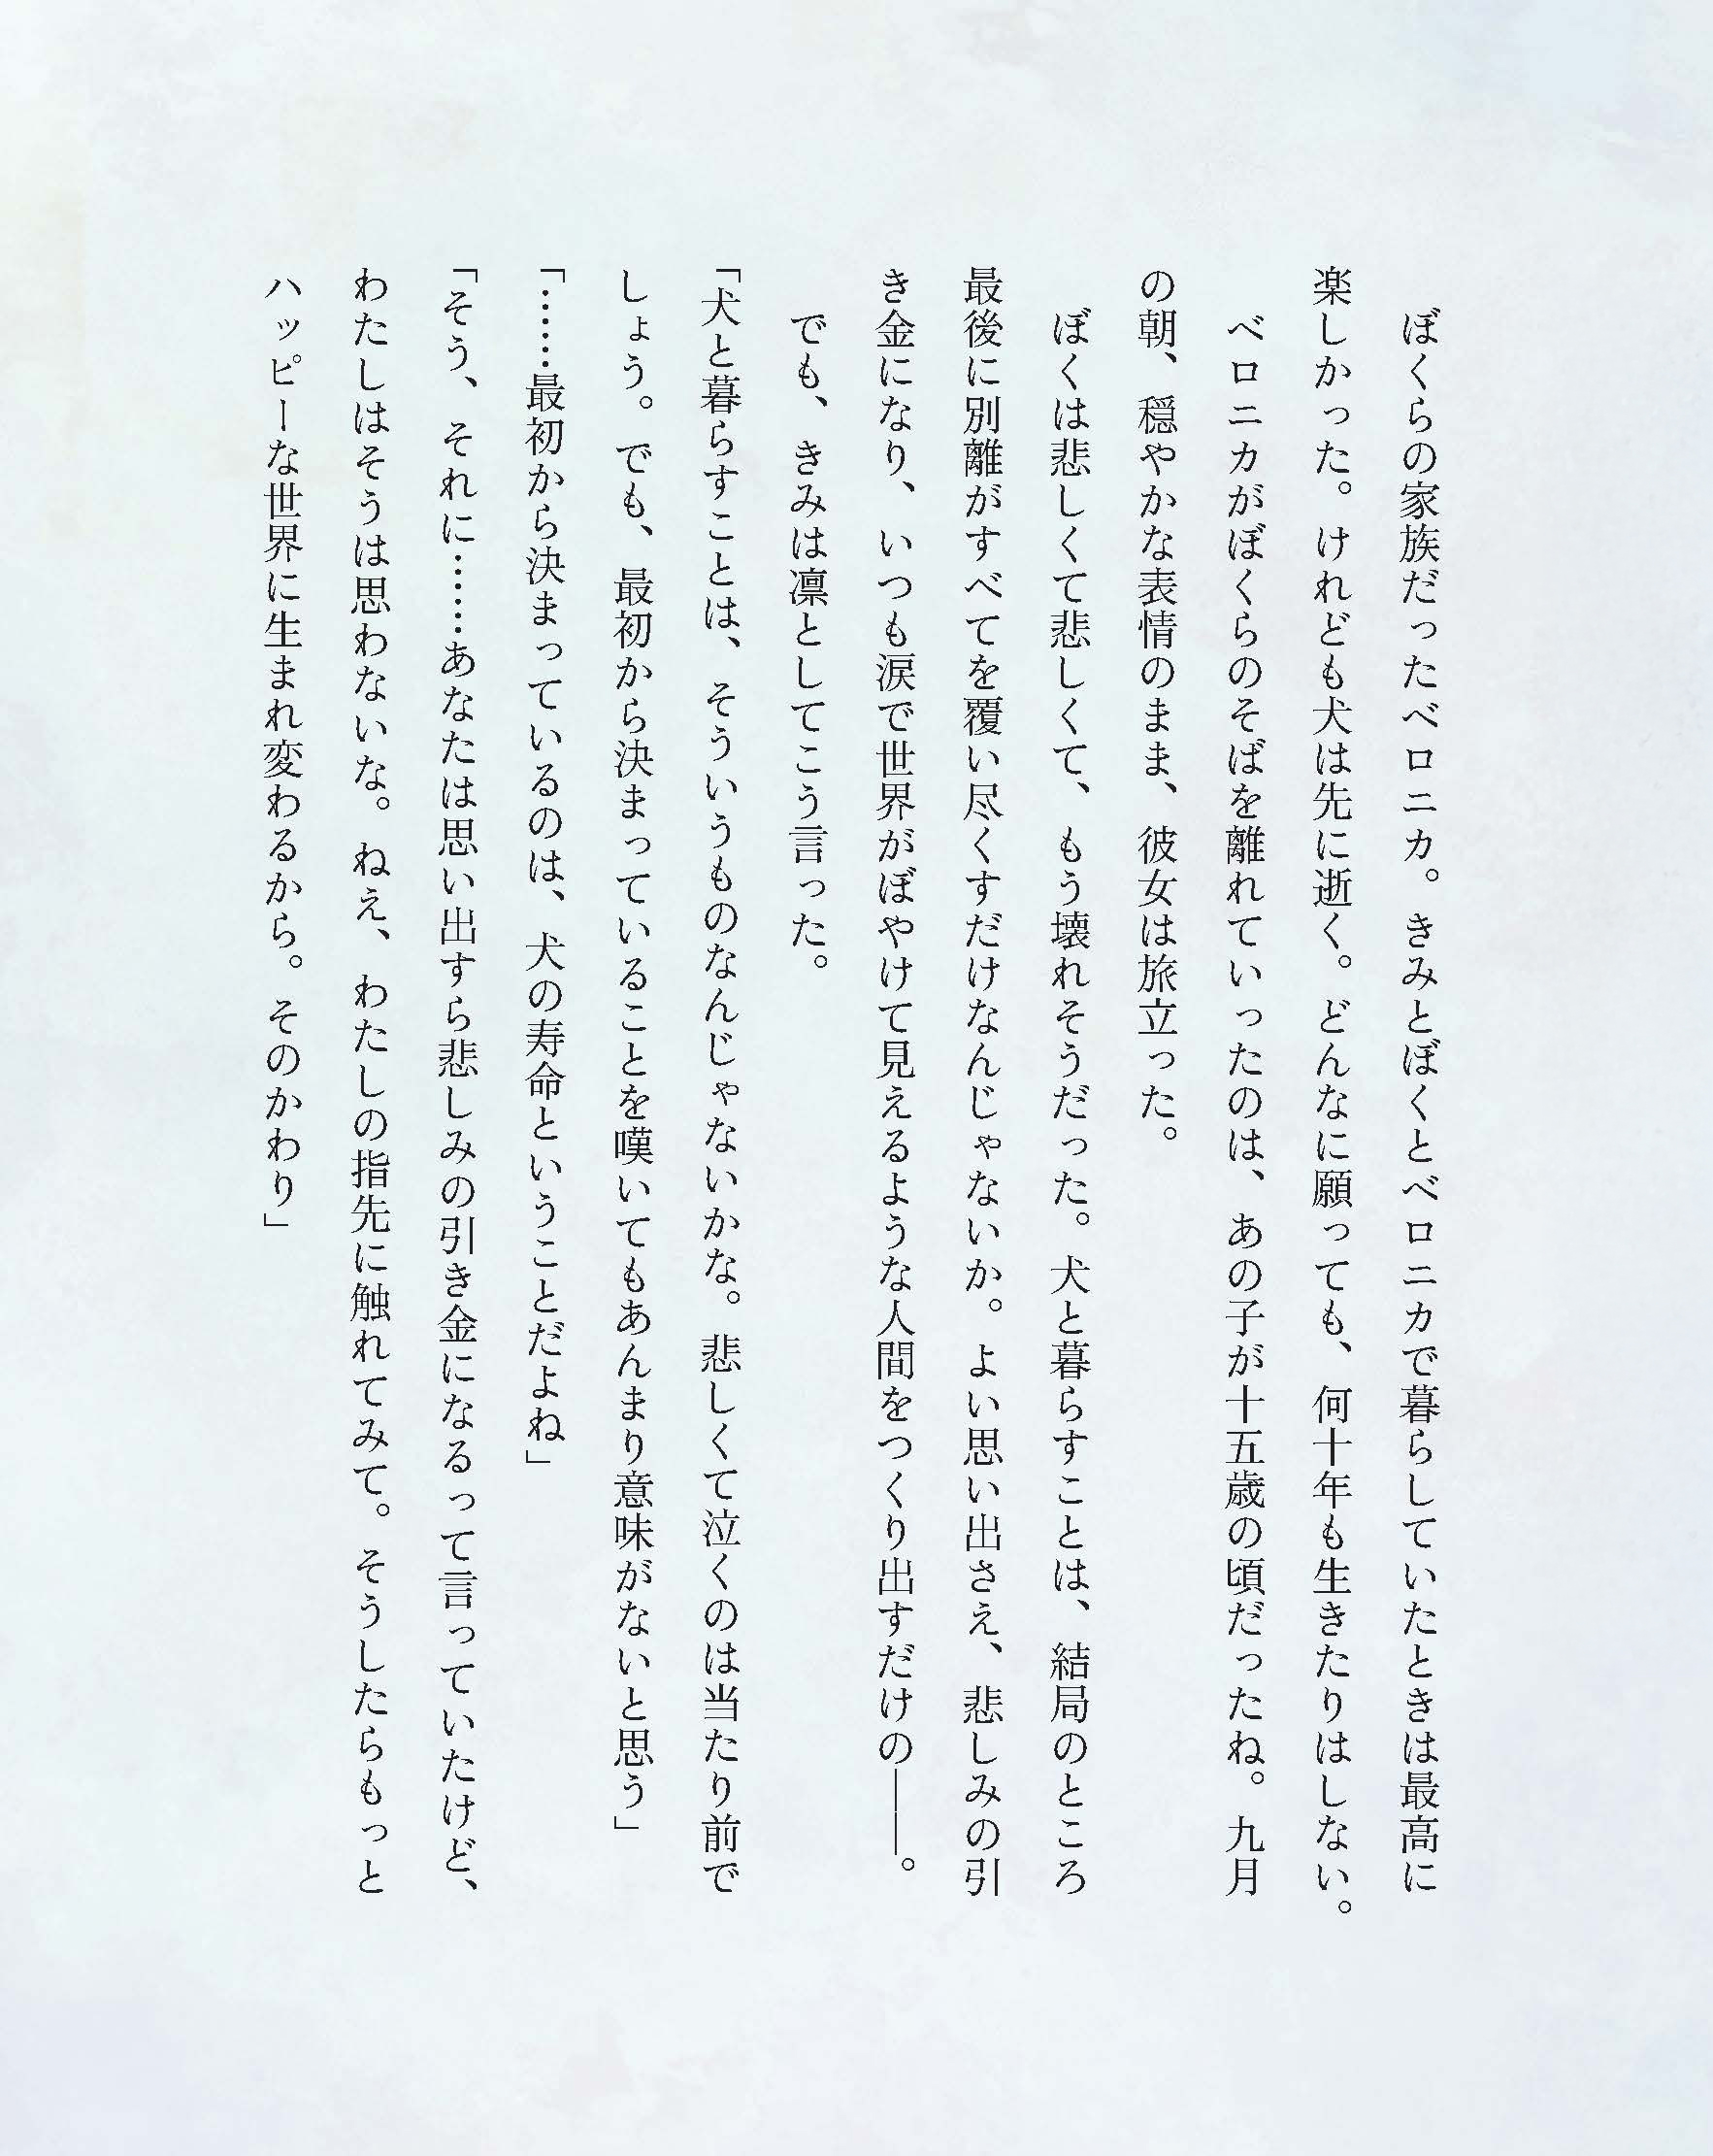 ぼくらの家族だったベロニカ。きみとぼくとベロニカで暮らしていたときは最高に
楽しかった。けれども犬は先に逝く。どんなに願っても、何十年も生きたりはしない。
　ベロニカがぼくらのそばを離れていったのは、あの子が十五歳の頃だったね。九月
の朝、穏やかな表情のまま、彼女は旅立った。
　ぼくは悲しくて悲しくて、もう壊れそうだった。犬と暮らすことは、結局のところ
最後に別離がすべてを覆い尽くすだけなんじゃないか。よい思い出さえ、悲しみの引
き金になり、いつも涙で世界がぼやけて見えるような人間をつくり出すだけの――。
　でも、きみは凛としてこう言った。
「犬と暮らすことは、そういうものなんじゃないかな。悲しくて泣くのは当たり前で
しょう。でも、最初から決まっていることを嘆いてもあんまり意味がないと思う」
「……最初から決まっているのは、犬の寿命ということだよね」
「そう、それに……あなたは思い出すら悲しみの引き金になるって言っていたけど、
わたしはそうは思わないな。ねえ、わたしの指先に触れてみて。そうしたらもっと
ハッピーな世界に生まれ変わるから。そのかわり」